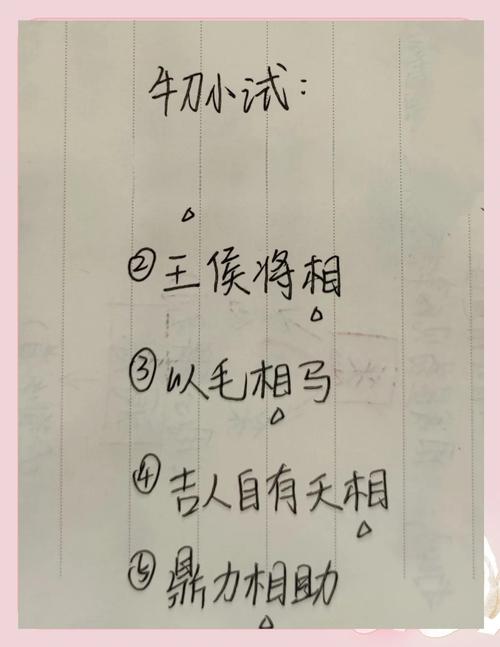 牛刀小试：
②王侯将相
③以毛相马
④吉人自有天相
⑤鼎力相助